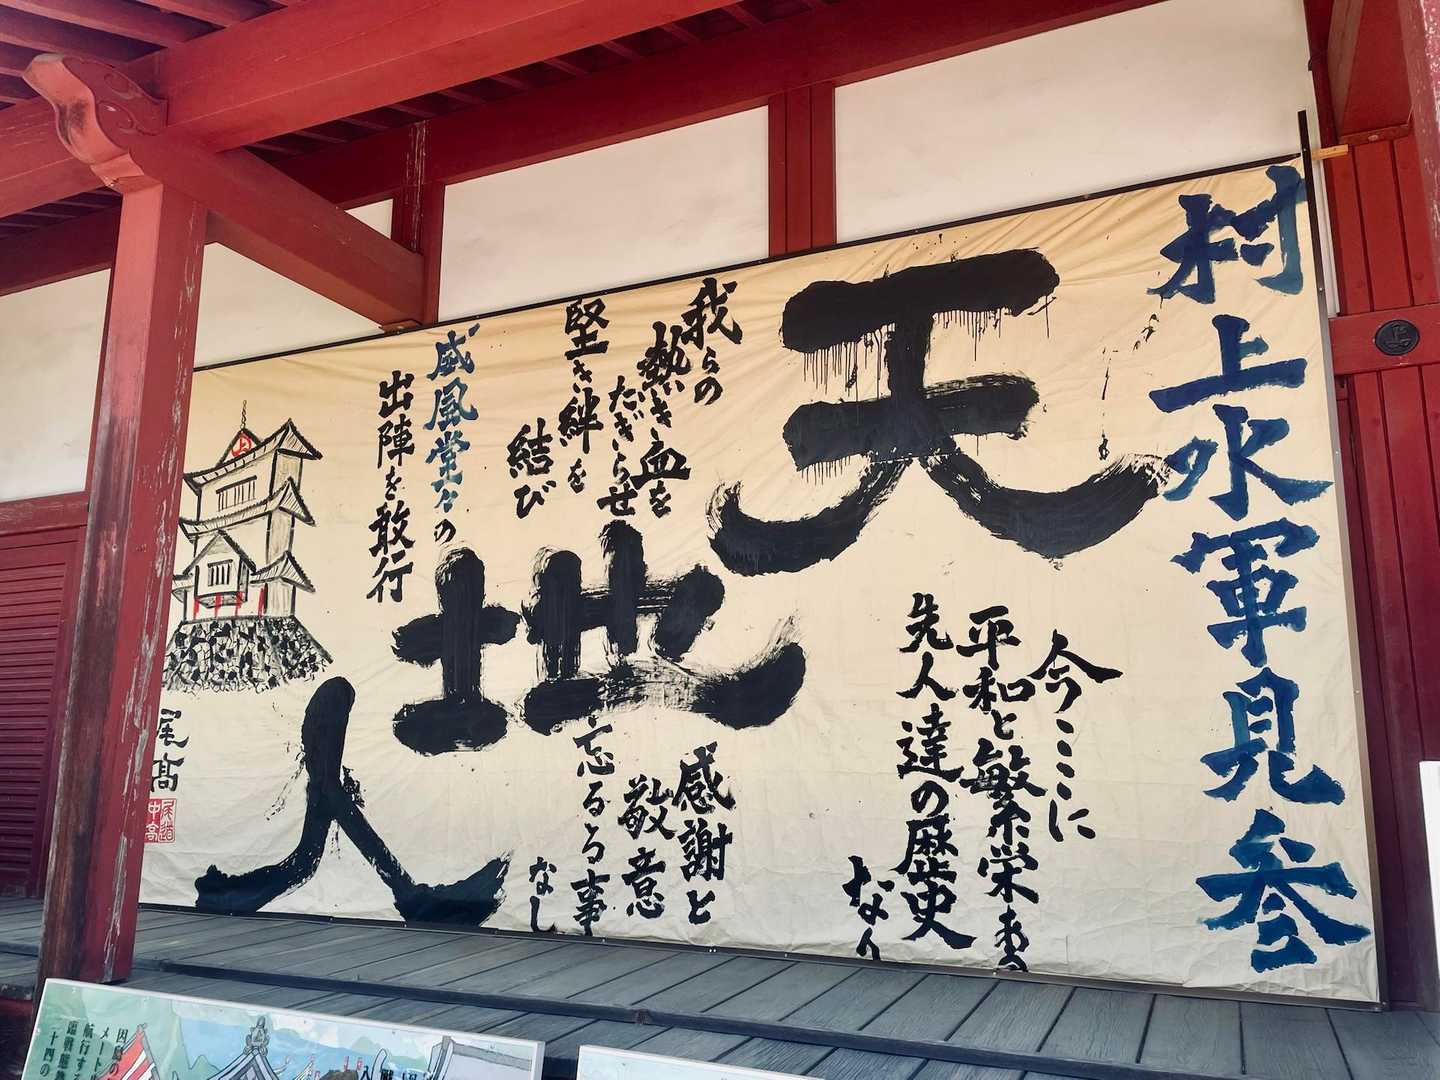 村上水軍見参
天
今ここに
平和と繁栄ある
先人達の歴史
なり
我らの
熱き血を
たぎらせ
堅き絆を
結び
地
感謝と
敬意
忘るる事
なし
威風堂々の
出陣を敢行
人
上
尾高
尾道
中高
上
因島の
メートル
航行する
十四の